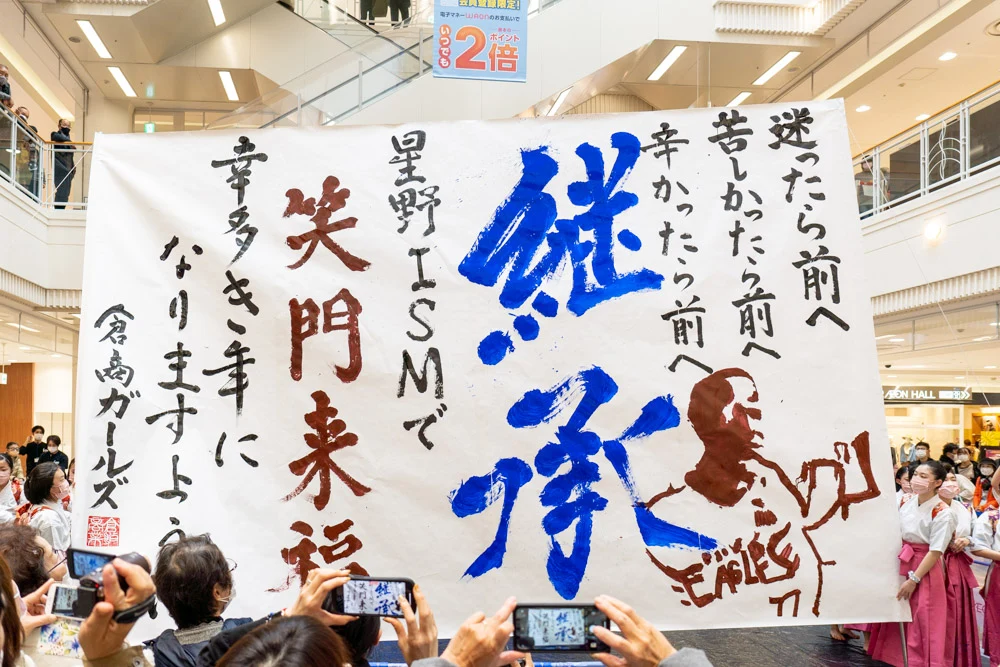 会員登録限定!
電子マネーWAONのお支払いで
いつでも
ポイント
2倍
迷ったら前へ
苦しかったら前へ
辛かったら前へ
継承
星野ISMで
笑門来福
幸多き年に
なりますよう
倉商ガールズ
EAGLES
77
AEON HALL